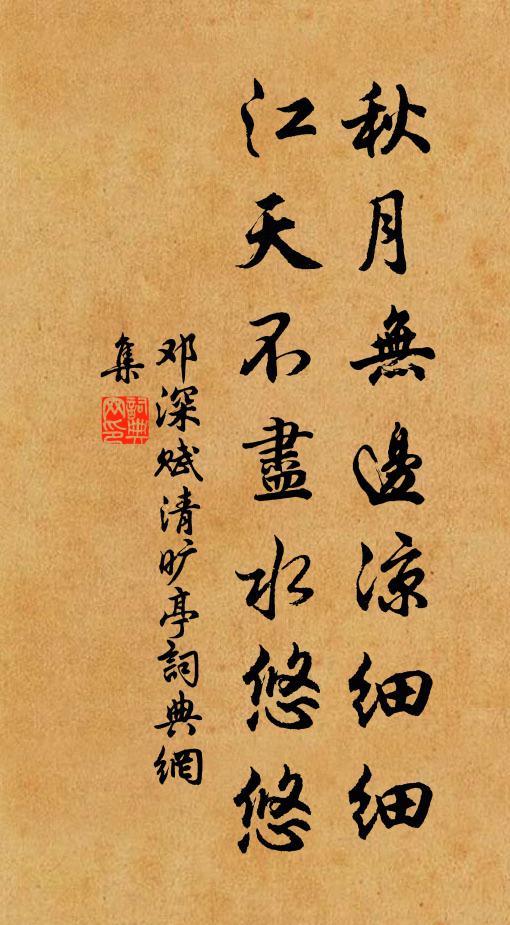 秋月無邊凉細細
江天不盡水悠悠
邓深赋清旷亭詞典網
集
詞典網印